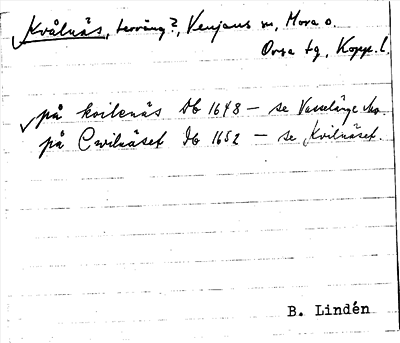 Kvålnäs, terräng?, Venjans sn, Mora o.
Orsa tg, Kopp. l.
på kvilenäs Db 1648 – se Vasselänge ko
på Cwilnäset Db 1652 – se Kvilnäset.
B. Lindén